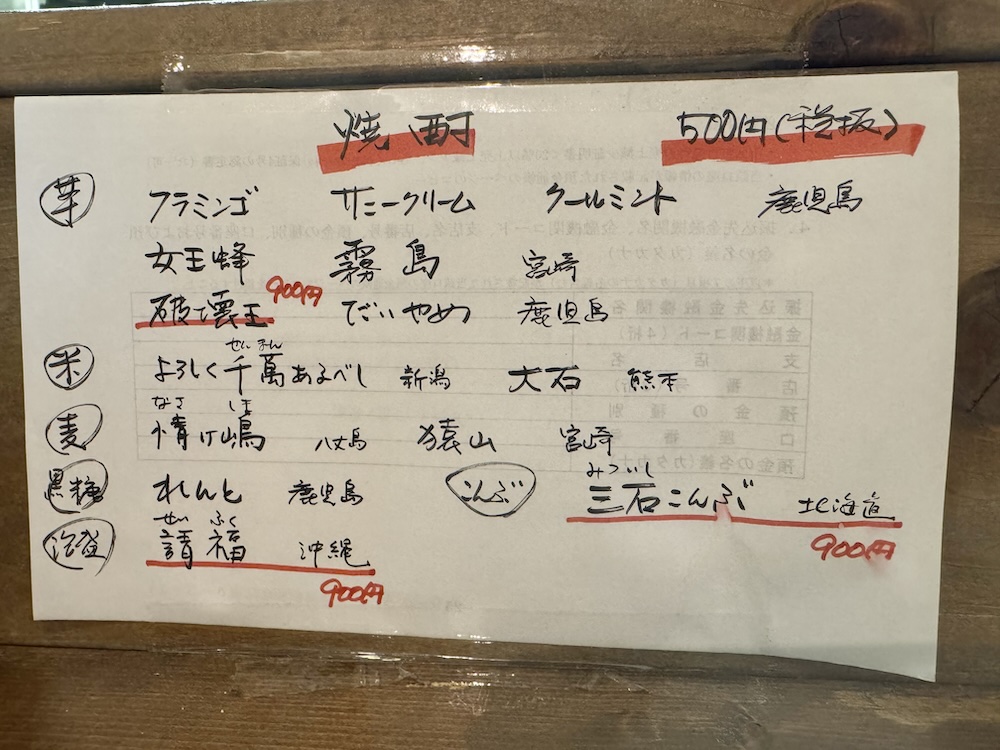 焼酎 500円(税抜)
芋 フラミンゴ サニークリーム クールミント 鹿児島
女王蜂 霧島 宮崎
900円
破壊王 だいやめ 鹿児島
せんまん
米 よろしく千萬あるべし 新潟 大石 熊本
なさ しま
麦 情け嶋 八丈島 猿山 宮崎
黒糖 れんと 鹿児島 こんぶ
みついし
三石こんぶ 北海道
900円
せいふく
泡盛 請福 沖縄
900円